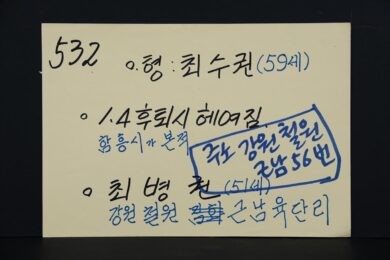 532
o.형 : 최수권 (59세)
• 1.4 후퇴시 헤여짐
함흥시가 본적
주도 강원 철원
근남 56번
• 최병권 (51세)
강원 철원 근남 육단리